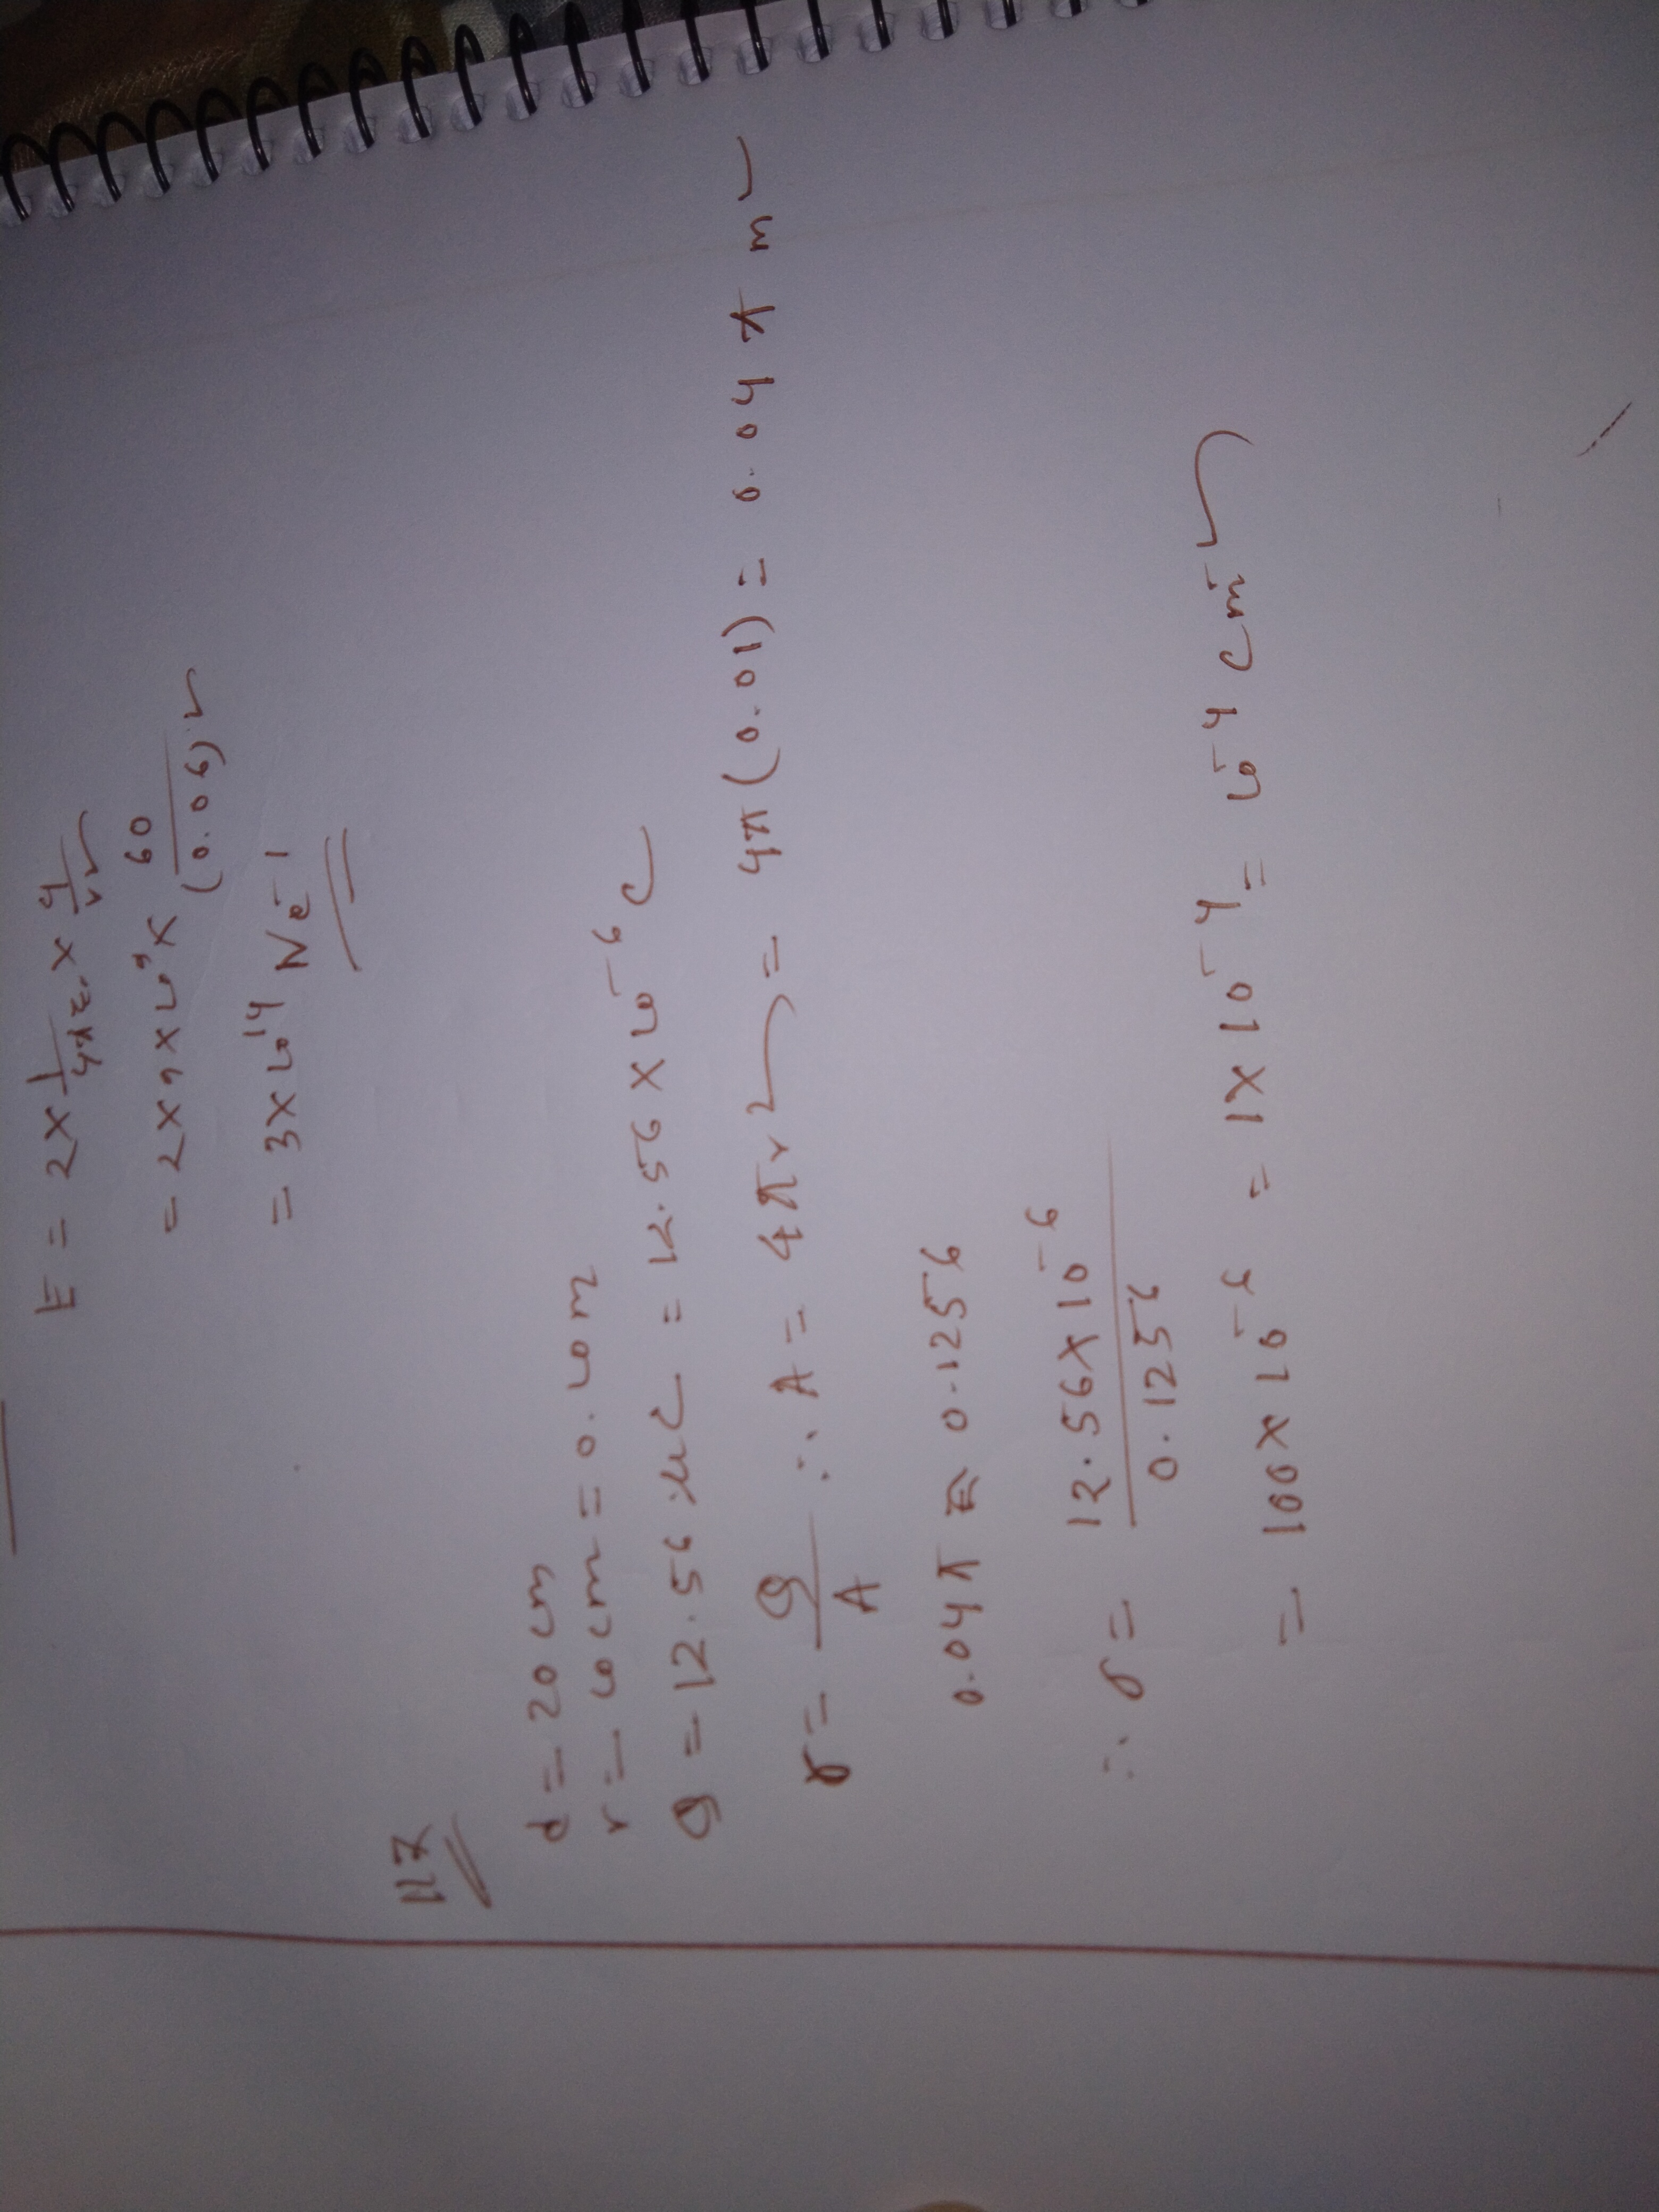 E = 2 × 1/4πε₀ × q/r²
= 2 × 9 × 10⁹ × 60/(0.06)²
= 3 × 10¹⁴ NC⁻¹
117
d = 20 cm
r = 10 cm = 0.10 m
q = 12.56 μC = 12.56 × 10⁻⁶ C
σ = q/A ∴ A = 4πr² = 4π(0.01) = 0.04π m²
0.04π = 0.1256
∴ σ = 12.56×10⁻⁶/0.1256
= 100 × 10⁻⁶ = 1×10⁻⁴ = 10⁻⁴ Cm⁻²